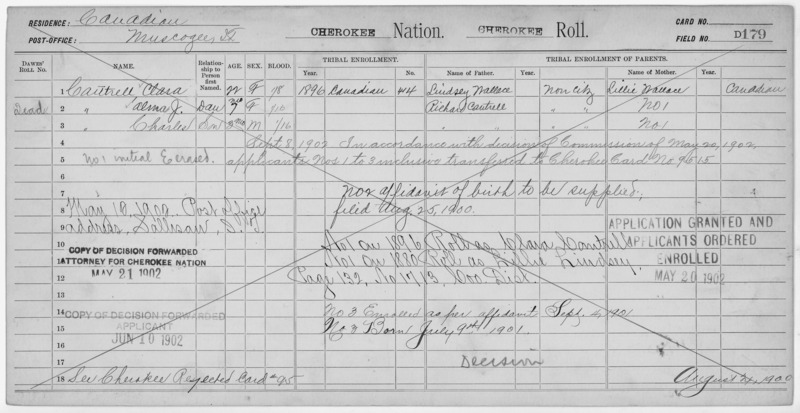 RESIDENCE: Canadian
POST-OFFICE: Muscogee, I.T.
CHEROKEE Nation. CHEROKEE Roll.
CARD NO.
FIELD NO. D179
DAWES' ROLL NO. NAME. Relationship to Person first Named. AGE. SEX. BLOOD. TRIBAL ENROLLMENT. TRIBAL ENROLLMENT OF PARENTS.
Year. County. No. Name of Father. Year. County. Name of Mother. Year. County.
1 Cantrell, Clara 22 F 1/8 1896 Canadian 414 Lindsey Wallace Non Citz Lillie Wallace Canadian
Dead 2 " Alma J. Dau F Richard Cantrell " " No 1
3 " Charles Son M 1/16 " " " " No 1
4 Sept 8, 1902 In accordance with decision of Commission of May 20, 1902,
5 No 1 initial E erased. applicants Nos 1 to 3 inclusive transferred to Cherokee Card No 9515
6
7 No 2 affidavit of birth to be supplied;
8 May 18, 1900. Post office filed Aug 25, 1900.
9 address, Sallisaw, I.T.
APPLICATION GRANTED AND
APPLICANTS ORDERED
ENROLLED
MAY 20 1902
10 No 1 on 1896 Roll as Clara Cantrell
COPY OF DECISION FORWARDED
11 ATTORNEY FOR CHEROKEE NATION No 1 on 1880 Roll as Lillie Lindsey,
12 MAY 21 1902 Page 132, No 1713, Goo. Dist.
13
14 No 3 Enrolled as per affidavit Sept. 1901
COPY OF DECISION FORWARDED
15 APPLICANT No 3 Born July 9th 1901.
16 JUN 10 1902
17 Decision
18 See Cherokee Rejected Card #95 August 1900